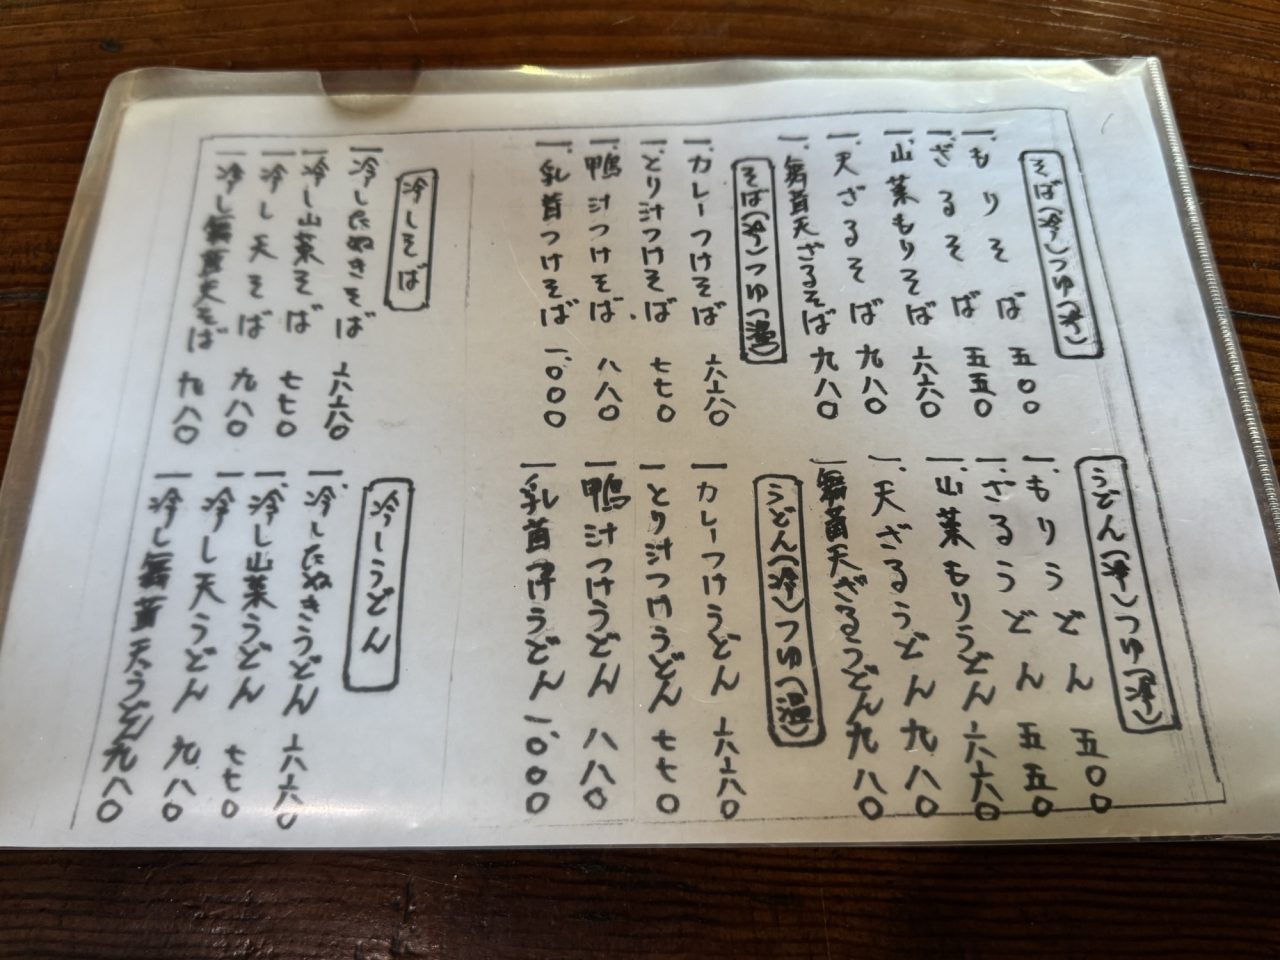 そば(冷)つゆ(冷)
一、もりそば 五〇〇
一、ざるそば 五五〇
一、山菜もりそば 六六〇
一、天ざるそば 九八〇
一、舞茸天ざるそば 九八〇
そば(冷)つゆ(温)
一、カレーつけそば 六六〇
一、とり汁つけそば 七七〇
一、鴨汁つけそば 八八〇
一、乳茸つけそば 一、〇〇〇
冷しそば
一、冷したぬきそば 六六〇
一、冷し山菜そば 七七〇
一、冷し天そば 九八〇
一、冷し舞茸天そば 九八〇
うどん(冷)つゆ(冷)
一、もりうどん 五〇〇
一、ざるうどん 五五〇
一、山菜もりうどん 六六〇
一、天ざるうどん 九八〇
一、舞茸天ざるうどん 九八〇
うどん(冷)つゆ(温)
一、カレーつけうどん 六六〇
一、とり汁つけうどん 七七〇
一、鴨汁つけうどん 八八〇
一、乳茸つけうどん 一、〇〇〇
冷しうどん
一、冷したぬきうどん 六六〇
一、冷し山菜うどん 七七〇
一、冷し天うどん 九八〇
一、冷し舞茸天うどん 九八〇